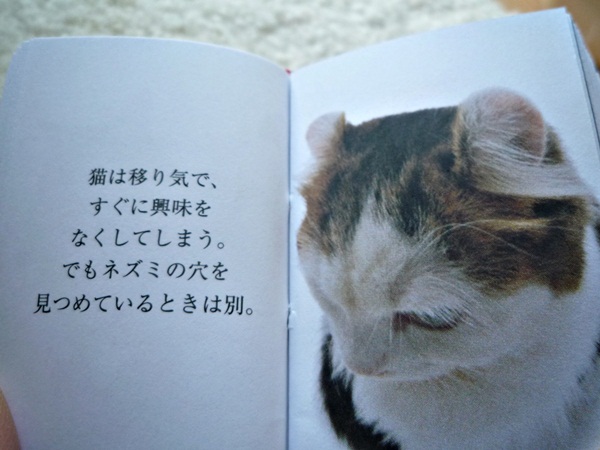 猫は移り気で、
すぐに興味を
なくしてしまう。
でもネズミの穴を
見つめているときは別。